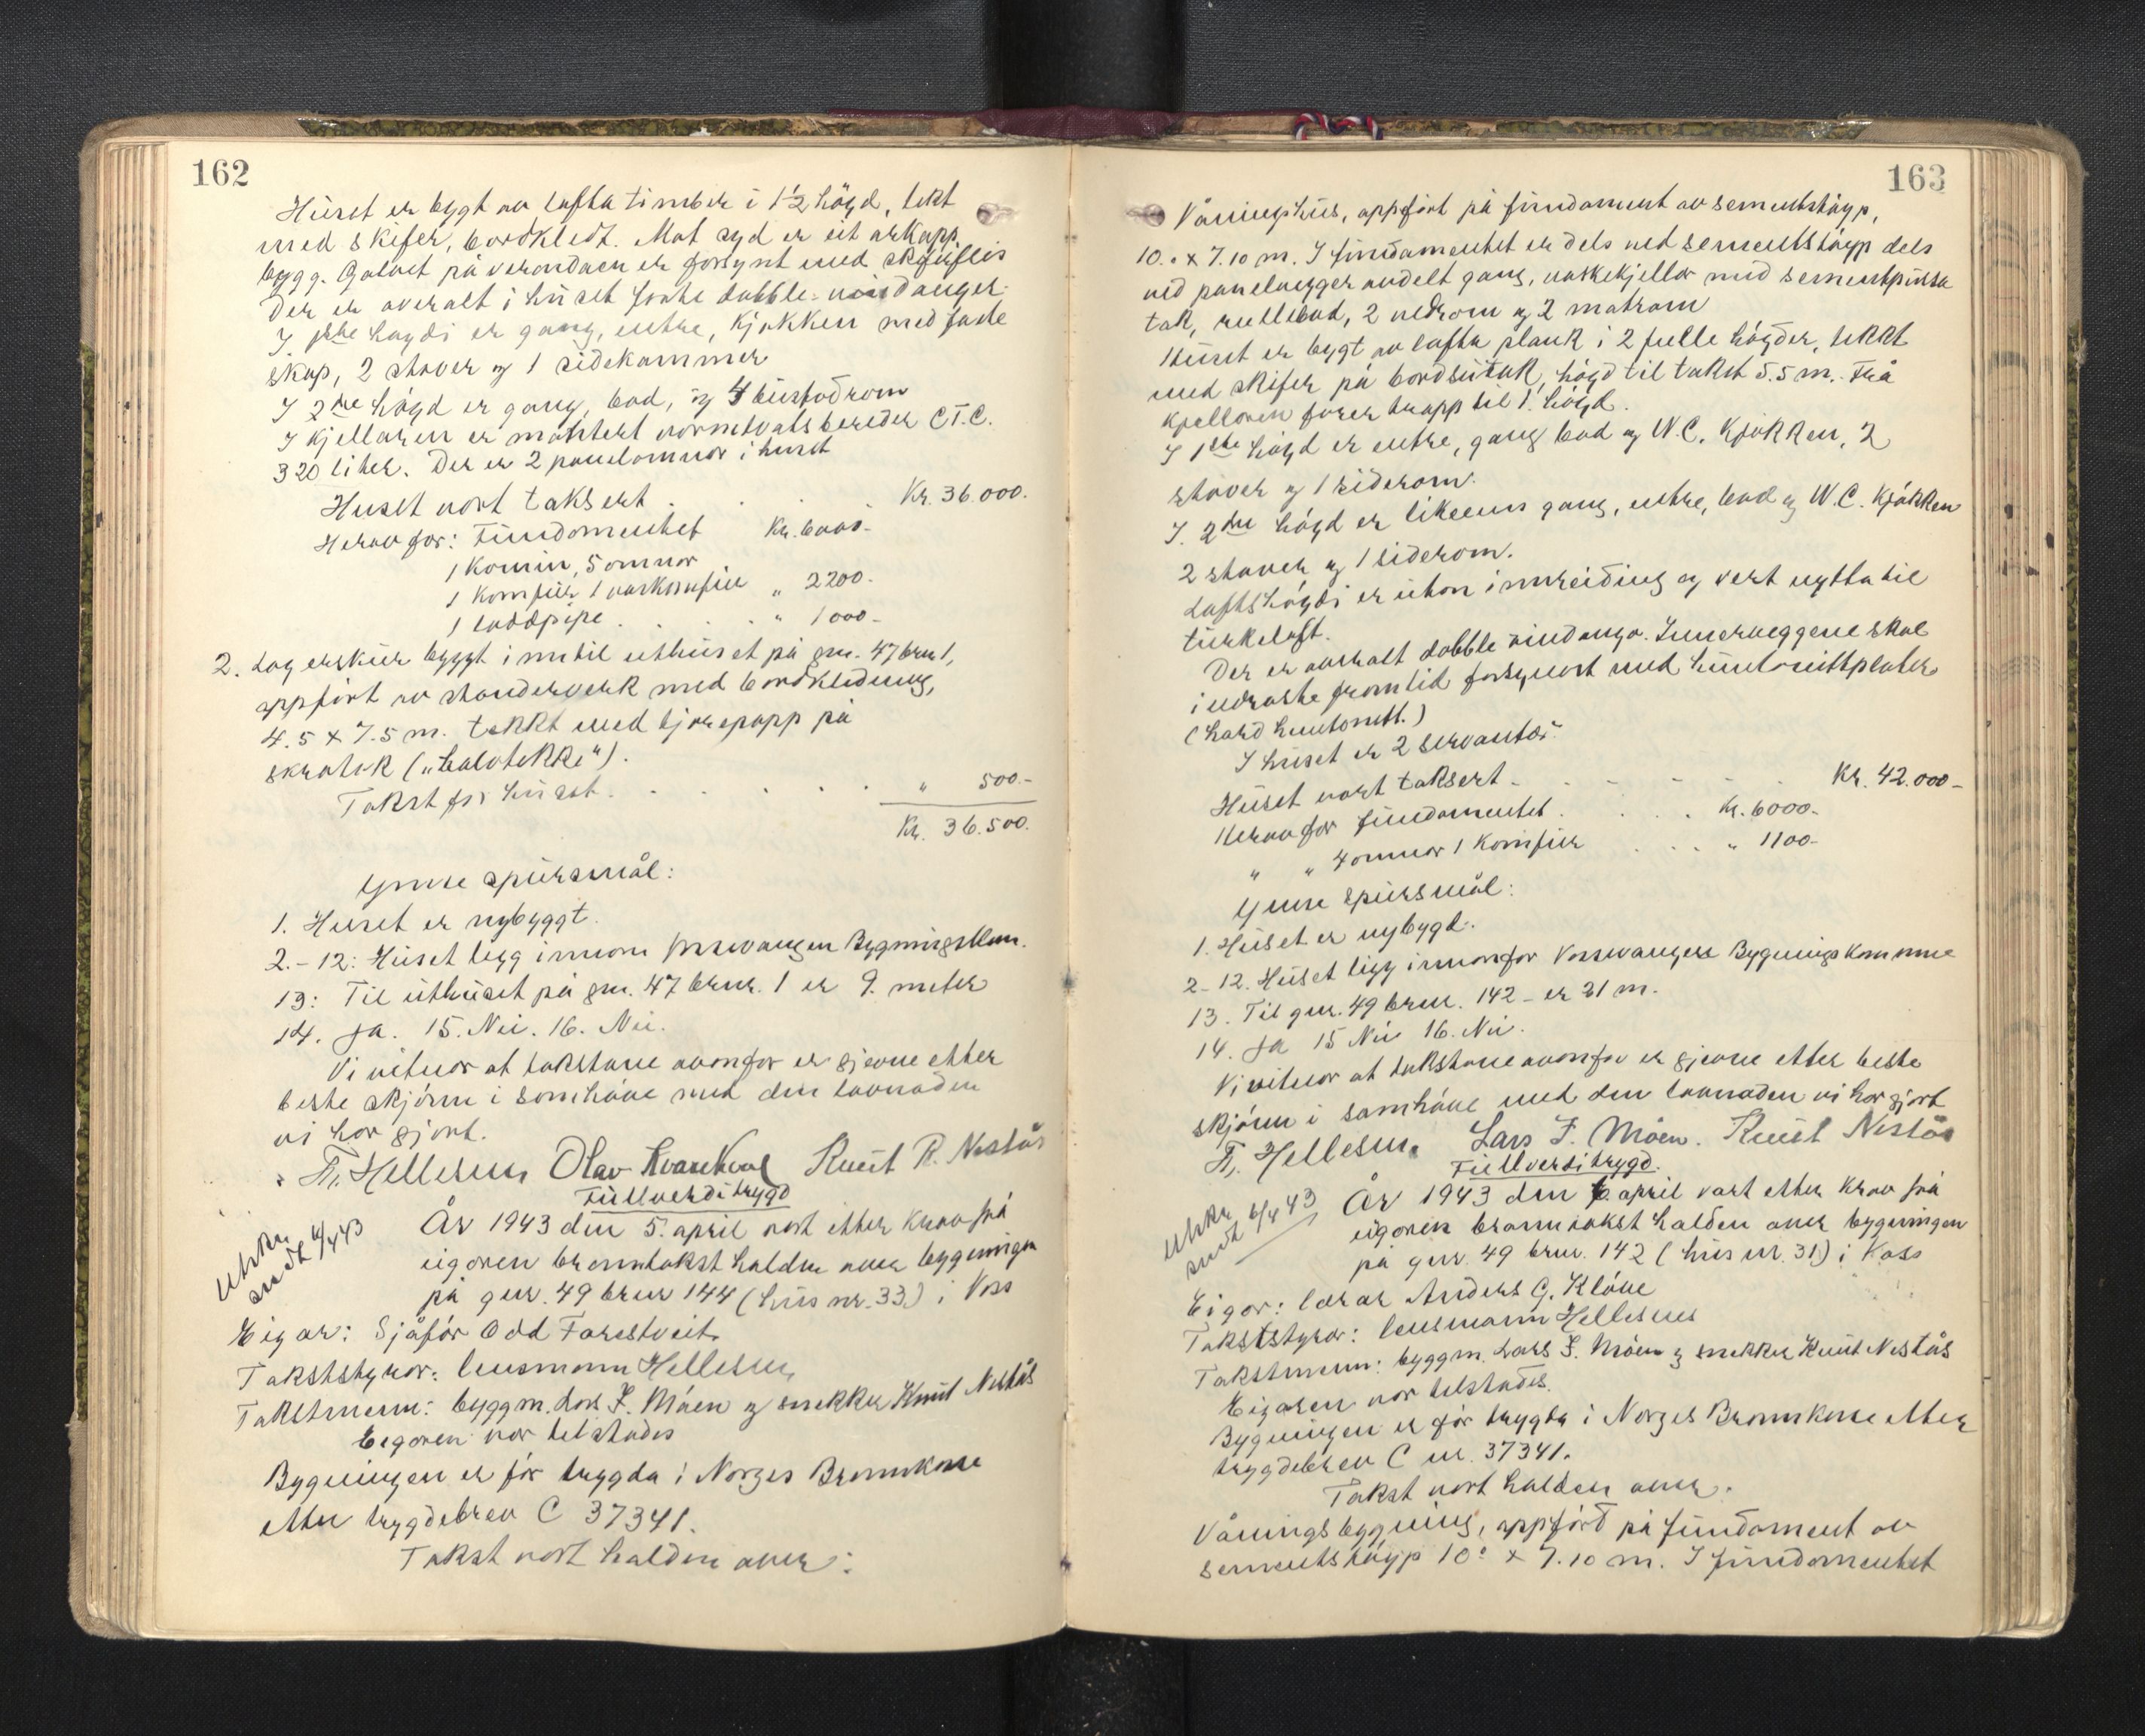 162
Huset er bygt av lafta timber i 1½ högd, tekt
med skifer, bordkledt. Mot syd er eit arkopp
bygg. Golvet på verondaen er forsynt med skiferflis
Der er overalt i huset frahe dobble vindauger.
I 1ste högdi er gang, entre, kjøkken med faste
skap, 2 stover og 1 sidekammer
I 2dre högd er gang, bad, og 4 bustadrom
I kjellaren er montert varmtvatsbereder C.T.C.
320 liter. Der er 2 panelomnar i huset
Huset vart taksert . . . . Kr. 36.000.
Herav for: Fundamentet Kr. 6000.-
1 komin, 5 omnar
1 komfür 1 vaskomfür „ 2200.-
1 loddpipe . . . . „ 1000.-
2. Lagerskur byggt inntil uthuset på gnr. 47 brnr 1,
oppført av standerverk med bordkledning,
4.5 x 7.5 m. tekkt med tjörepapp på
skratak („halvtekke“).
Takst for huset . . . . . „ 500.-
Kr. 36.500.
Ymse spursmål:
1. Huset er nybyggt.
2.-12: Huset ligg innom Vossevangen Bygningskom.
13: Til uthuset på gnr. 47 brnr. 1 er 9. meter
14. Ja. 15. Nei. 16. Nei.
Vi vitnar at takstane ovanfor er gjevne etter
beste skjönn i samhöve med den lovnaden
vi har gjort.
Hellesnes Olav Kvarekval Knut R. Nestås
Fullverditrygd
Utskr. sendt 6/4 43
År 1943 den 5. april vart etter krav frå
eigaren branntakst halden over bygningen
på gnr. 49 brnr 144 (hus nr. 33) i Voss
Eigar: Sjåför Odd Farestveit
Takststyrar: lensmann Hellesnes
Takstmenn: byggm. Lars F. Möen og snekker Knut Nestås
Eigaren var tilstades
Bygningen er för trygda i Norges Brannkasse
etter trygdebrev C 37341.
Takst vart halden over:
163
Våningshus, oppfört på fundament av sementstöyp,
10.0 x 7.10 m. I fundamentet er dels ved sementstöyp dels
ved panelvegger avdelt gang, vaskekjeller med sementpussa
tak, rullebod, 2 vedrom og 2 matrom
Huset er bygt av lafta plank i 2 fulle högder, tekkt
med skifer på bordsutak, högd til takst 5.5 m. Frå
kjellaren förer trapp til 1. högd.
I 1ste högd er entre, gang bad og W.C. kjökken, 2
stover og 1 siderom.
I 2dre högd er likeeins gang, entre, bad og W.C. kjökken
2 stover og 1 siderom.
Loftshögdi er uton innreiding og vert nytta til
turkeloft.
Der er overalt dobble vindaugo. Innerveggene skal
i nedraste framtid forsynast med huntonittplater
(hard huntonitt.)
I huset er 2 servantar.
Huset vart taksert . . . . . . Kr. 42.000.-
Herav for fundamentet . . . . Kr. 6000.-
„ „ 4 omnar 1 komfur . . . „ 1100.-
Ymse spursmål:
1. Huset er nybygd.
2-12. Huset ligg innanfor Vossevangens Bygningskommune
13. Til gnr. 49 brnr. 142 - er 21 m.
14. Ja 15 Nei 16. Nei.
Vi vitnar at takstane ovanfor er gjevne etter beste
skjönn i samhöve med den lovnaden vi har gjort
Hellesnes Lars F. Möen. Knut Nestås
Fullverditrygd.
Utskr. sendt 6/4 43
År 1943 den 6. april vart etter krav frå
eigaren branntakst halden over bygningen
på gnr. 49 brnr. 142 (hus nr. 31) i Voss
Eigar: lærar Anders G. Klöve
Takststyrar: lensmann Hellesnes
Takstmenn: byggm. Lars F. Möen og snekker Knut Nestås
Eigaren var tilstades.
Bygningen er för trygda i Norges Brannkasse etter
trygdebrev C nr. 37341.
Takst vart halden over.
Våningsbygning, oppförd på fundament av
sementstöyp 10.0 x 7.10 m. I fundamentet